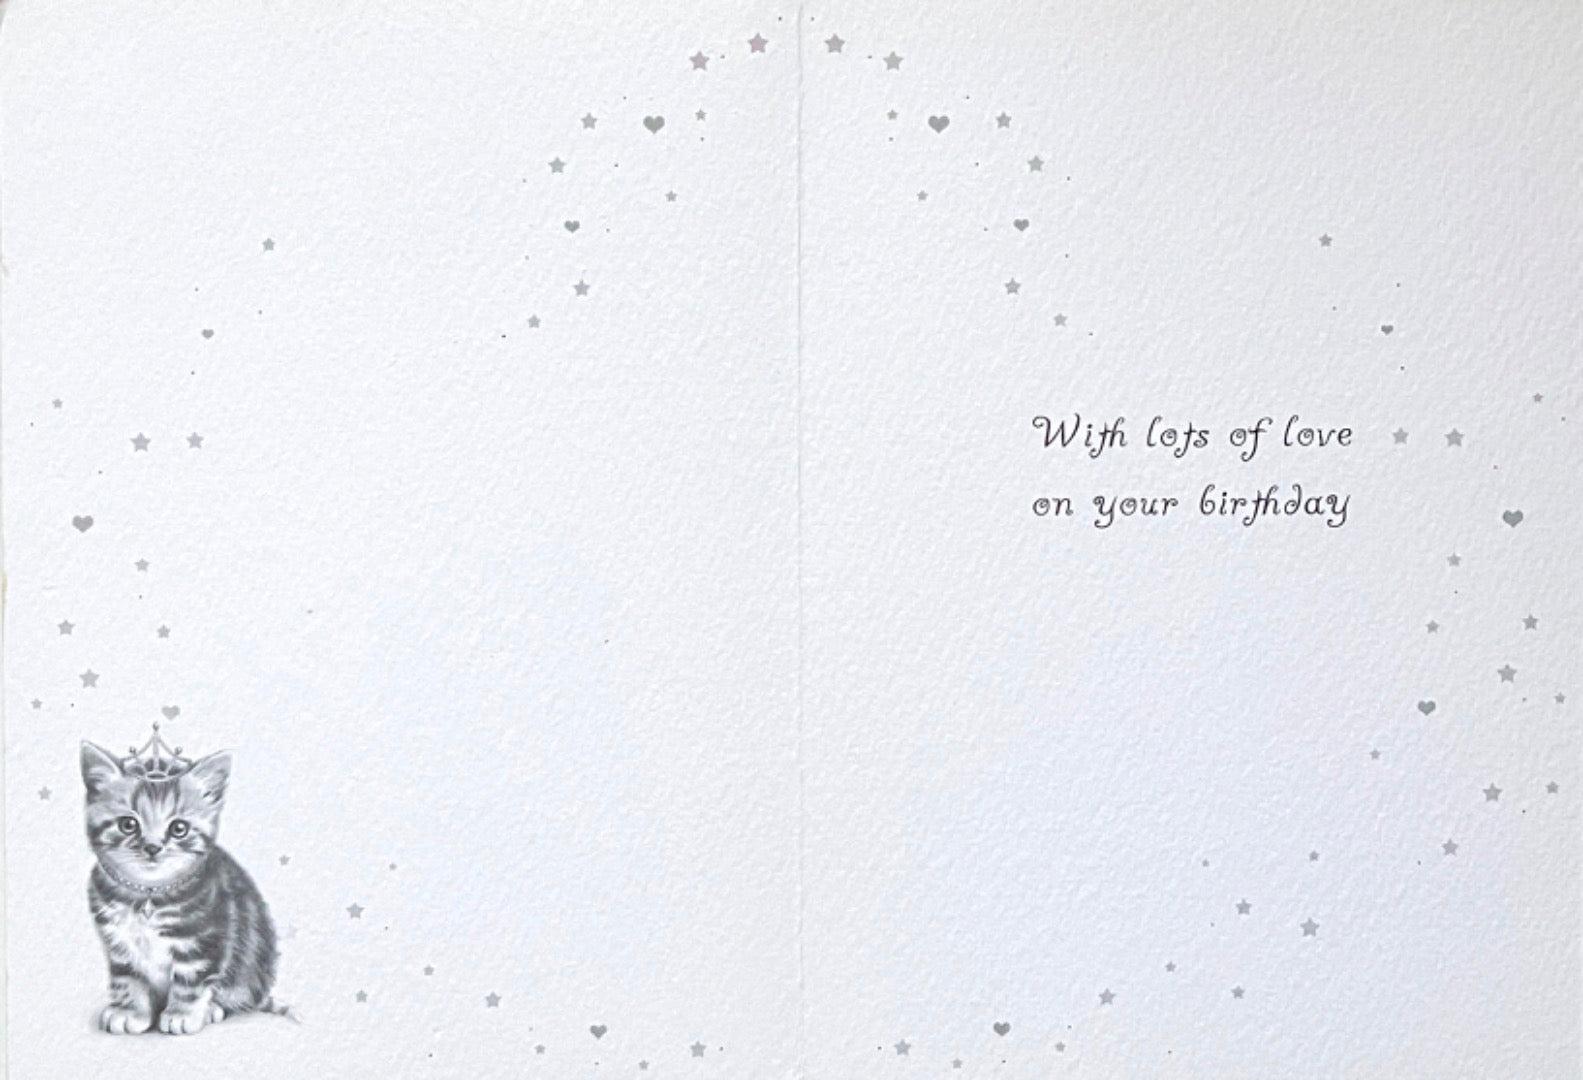 With lots of love
on your birthday